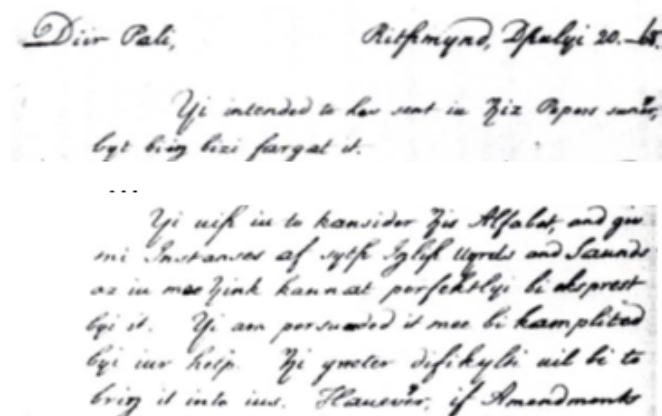 Diir Pali, Ritɧmɥnd, Dɧulɥi 20.—68.
ɥi intended to hav sent iu ɦiz Pepers sunɥr,
bɥt biiŋ bizi fargat it.
...
ɥi uiɧ iu to kansider ɦis Alfabet, and giv
mi Instanses af sɥtɧ Iŋliɧ Uɥrds and Saunds
az iu mee ɦink kannat perfektlɥi bi eksprest
bɥi it. ɥi am persuaded it mee bi kamplited
bɥi iur help. ɦi greeter difikɥlti uil bi to
briŋ it into ius. Hauevɥr, if Amendments